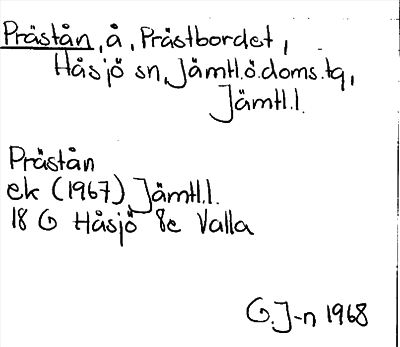 Prästån, å, Prästbordet,
Håsjö sn, Jämtl.ö.doms.tg,
Jämtl.l.
Prästån
ek (1967) Jämtl.l.
18 G Håsjö 8e Valla
G.J-n 1968